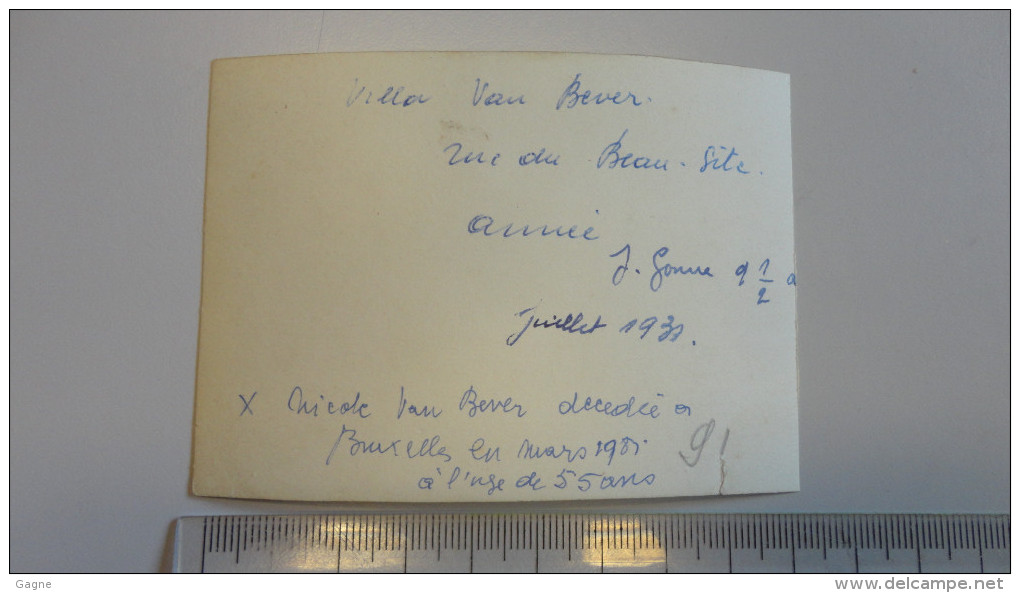 Villa Van Bever.
rue du Beau-Site.
année
J. Gonne 9 1/2 a
Juillet 1931.
X Nicole Van Bever decedée a
Bruxelles en mars 1981
à l'age de 55 ans
Gagne
www.delcampe.net